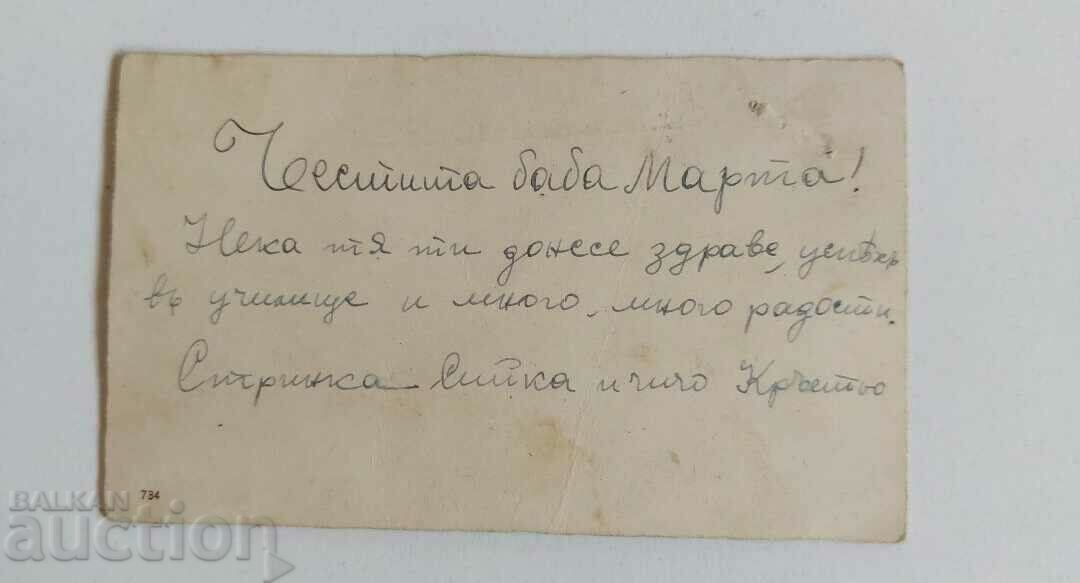 Честита баба Марта!
Нека тя ти донесе здраве, успѣхъ
въ училище и много, много радости.
Стринка Сийка и чичо Кръстьо
734
BALKAN
auction